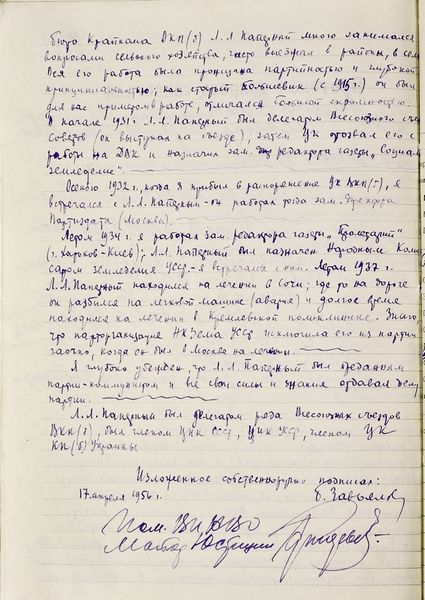 бюро Крайкома ВКП(б) Л.Л. Паперный много занимался
вопросами сельского хозяйства, часто выезжал в районы, в села
Вся его работа была пронизана партийностью и глубокой
принципиальностью; как старый большевик (с 1915 г.) он был
для нас примером в работе, отличался большой скромностью.
В начале 1931 г. Л.Л. Паперный был делегатом Всесоюзного съезда
Советов (он выступал на съезде), затем ЦК отозвал его с
работы на ДВК и назначил зам. редактора газеты „Социал.
земледелие“
Осенью 1932 г., когда я прибыл в распоряжение ЦК ВКП(б), я
встречался с Л.Л. Паперный - он работал тогда зам. директора
Партиздата (Москва).
Летом 1934 г. я работал зам. редактора газеты „Пролетарий“
(г. Харьков-Киев); Л.Л. Паперный был назначен Народным Комис
саром земледелия УССР - я встречался с ним. Летом 1937 г.
Л.Л. Паперный находился на лечении в Сочи, где-то на дороге
он разбился на легковой машине (авария) и долгое время
находился на лечении в Кремлевской поликлинике. Знаю,
что парторганизация НКЗема УССР исключила его из партии
заочно, когда он был в Москве на лечении.
Я глубоко убежден, что Л.Л. Паперный был преданным
партии-коммунистом и все свои силы и знания отдавал делу
партии.
Л.Л. Паперный был делегатом ряда Всесоюзных съездов
ВКП(б), был членом ЦИК СССР, ЦИК УССР, членом ЦК
КП(б) Украины
Изложенное собственноручно подписал:
17 апреля 1956 г.
Пом.
Майор Юстиции